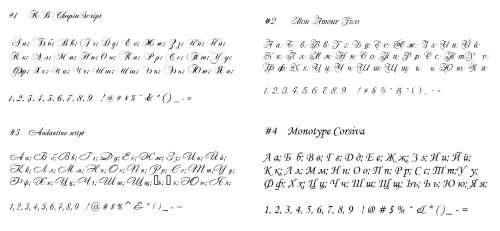 #1 K B Chopin Script
Аа; Бб; Вв; Гг; Дд; Ее; Жж; Зз; Ии; Йй;
Кк; Лл; Мм; Нн; Оо; Пп; Рр; Сс; Тт; Уу;
Фф; Хх; Цц; Чч; Шш; Щщ; Ъъ; Ьь; Юю; Яя;
1, 2, 3, 4, 5, 6, 7, 8, 9 ! @ # $ % ^ & * ( ) _ - =
#2 Mon Amour Two
Аа; Бб; Вв; Гг; Дд; Ее; Жж; Зз; Ии; Йй;
Кк; Лл; Мм; Нн; Оо; Пп; Рр; Сс; Тт; Уу;
Фф; Хх; Цц; Чч; Шш; Щщ; ъ; ь; Юю; Яя;
1, 2, 3, 4, 5, 6, 7, 8, 9 ! # $ % ^ & * ( ) _ - =
#3 Andantino script
Аа; Бб; Вв; Гг; Дд; Ее; Жж; Зз; Ии; Йй;
Кк; Лл; Мм; Нн; Оо; Пп; Рр; Сс; Тт; Уу;
Фф; Хх; Цц; Чч; Шш; Щщ; Юю; Яя;
1, 2, 3, 4, 5, 6, 7, 8, 9 ! @ # $ % ^ & * ( ) _ - =
#4 Monotype Corsiva
Аа; Бб; Вв; Гг; Дд; Ее; Жж; Зз; Ии; Йй;
Кк; Лл; Мм; Нн; Оо; Пп; Рр; Сс; Тт; Уу;
Фф; Хх; Цц; Чч; Шш; Щщ; Ъъ; Ьь; Юю; Яя;
1, 2, 3, 4, 5, 6, 7, 8, 9 ! @ # $ % ^ & * ( ) _ - =